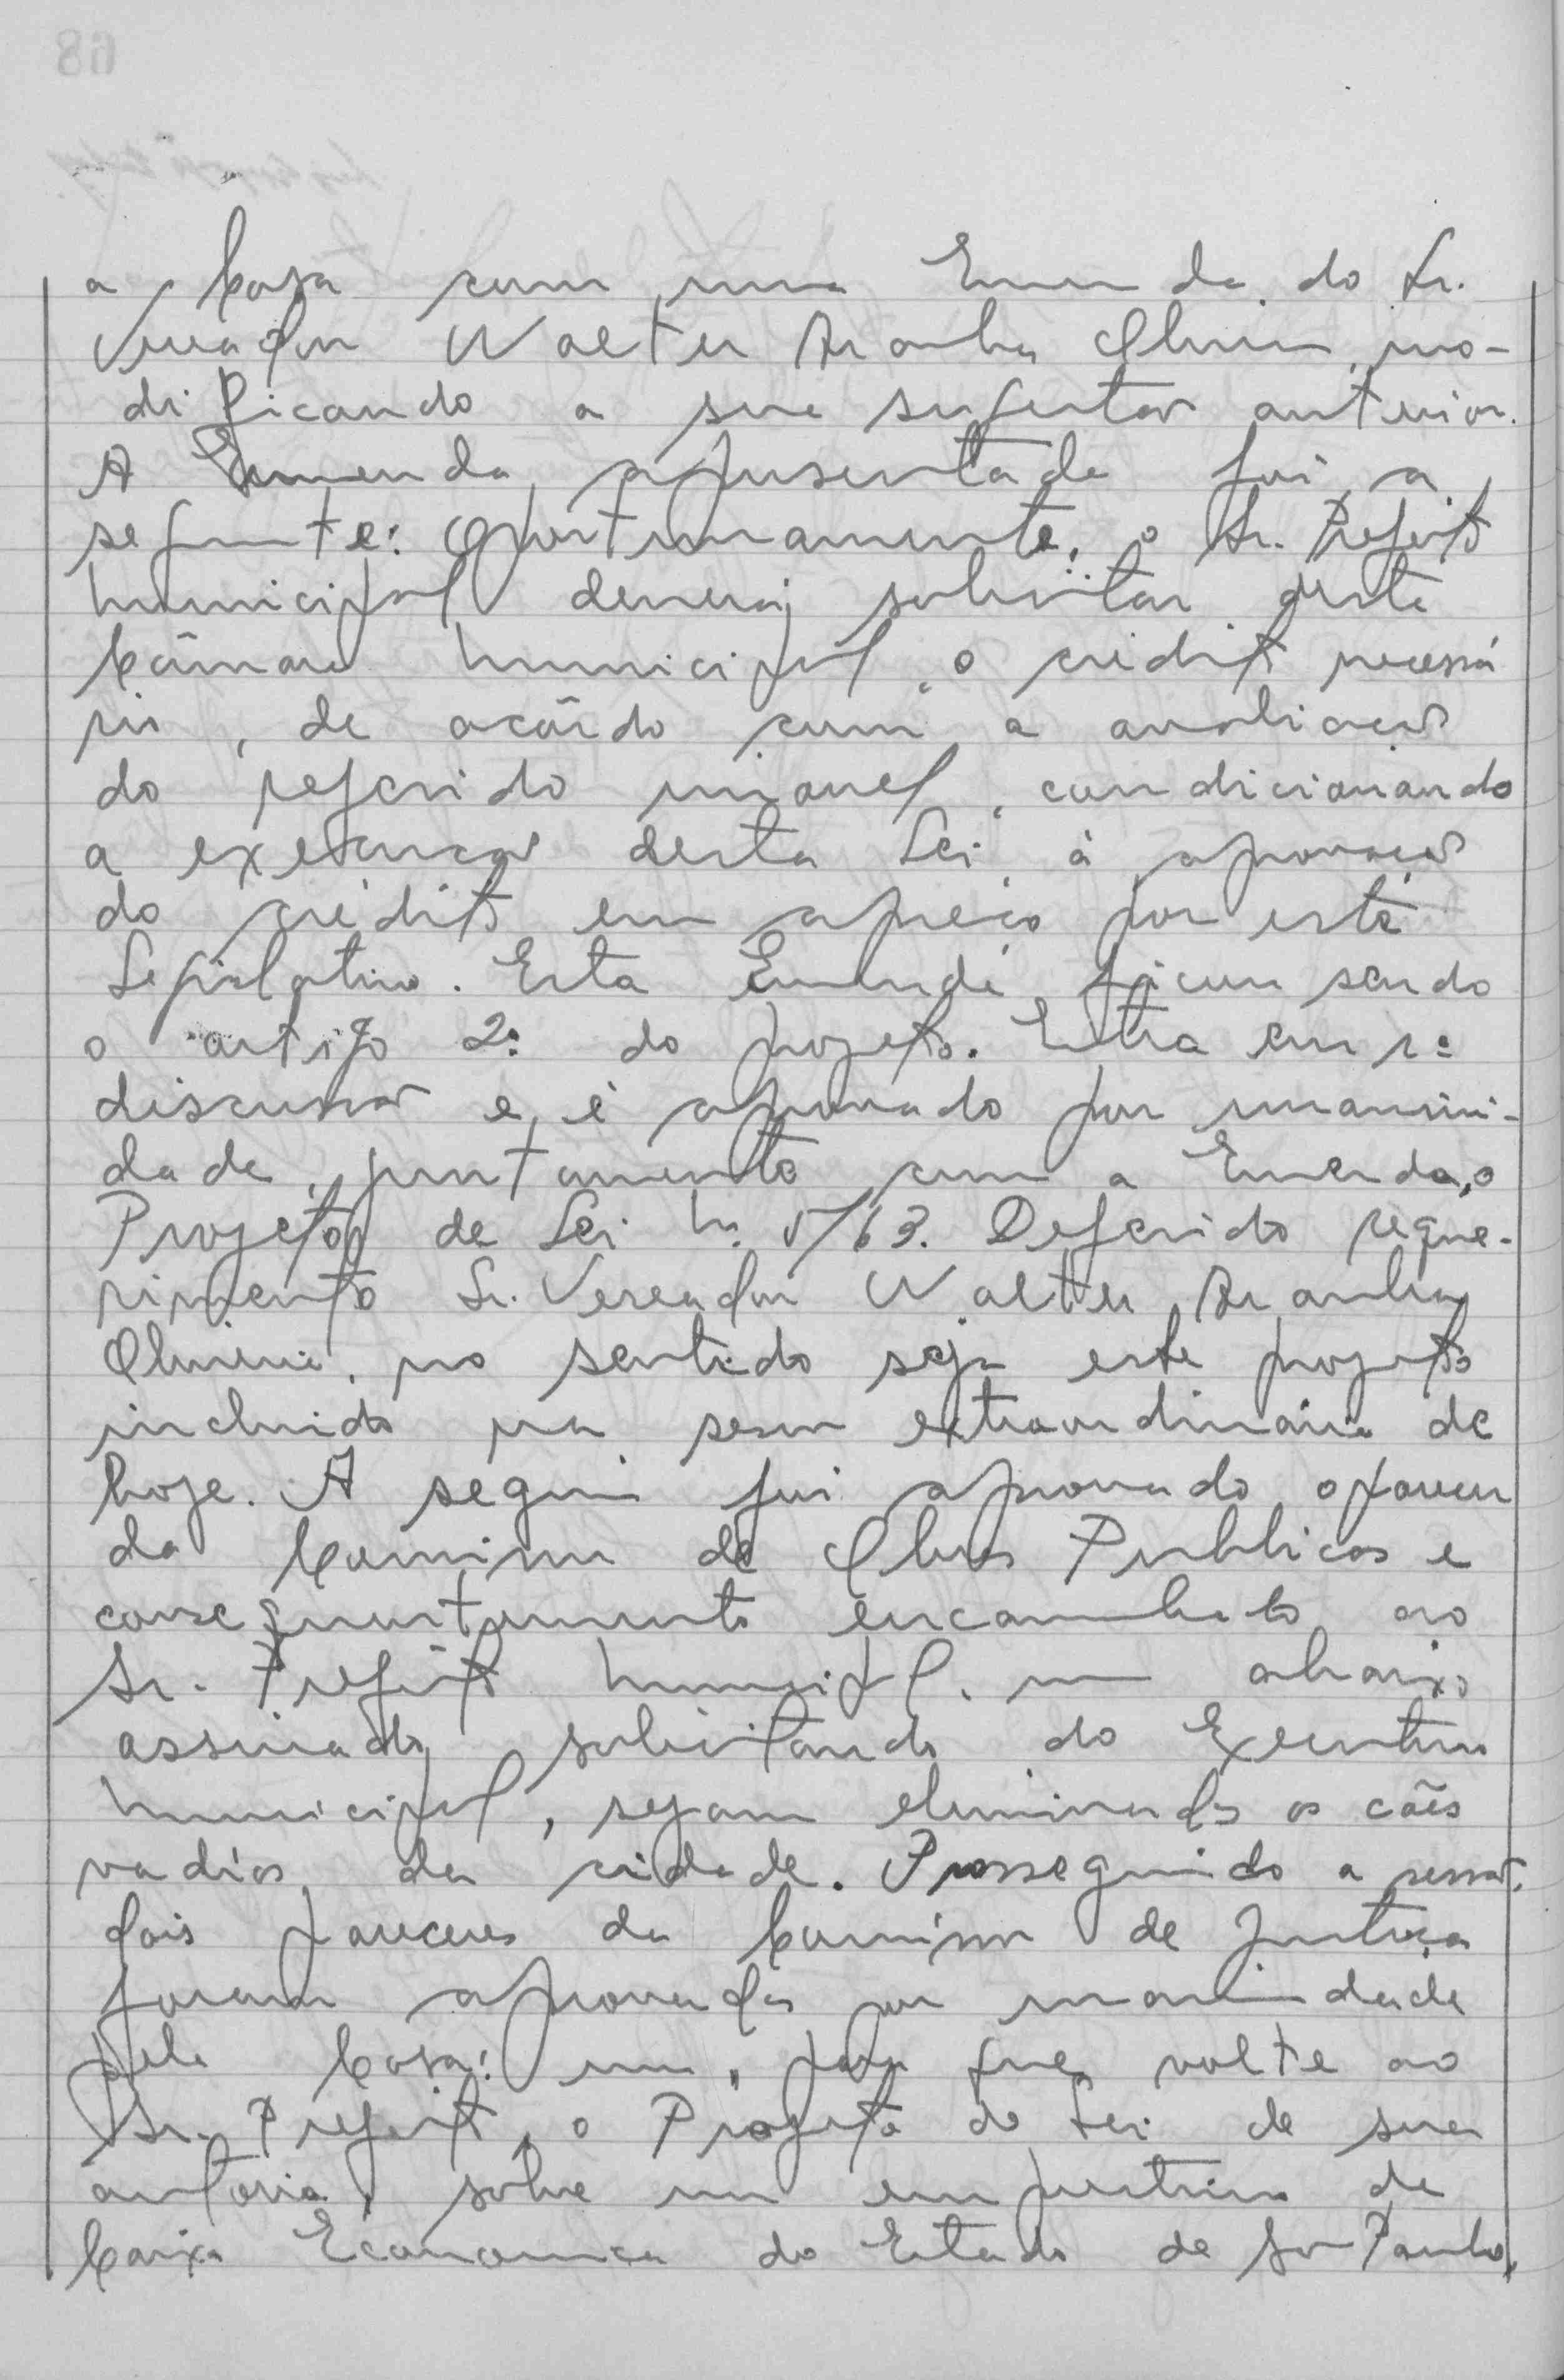 a Casa com uma Emenda do Sr.
Vereador Walter Aranha Oliveira, mo-
dificando a sua sugestão anterior.
A Emenda apresentada foi a
seguinte: Oportunamente, o Sr. Prefeito
Municipal deverá solicitar desta
Câmara Municipal, o crédito necessá
rio, de acôrdo com a avaliação
do referido imovel, condicionando
a execução desta Lei à aprovação
do crédito em aprêço por este
Legislativo. Esta Emenda ficou sendo
o artigo 2º do projeto. Entra em 1ª
discussão e é aprovado por unanimi-
dade, juntamente com a Emenda, o
Projeto de Lei n. 5/63. Deferido reque-
rimento Sr. Vereador Walter Aranha
Oliveira, no sentido seja este projeto
incluido na sessão extraordinária de
hoje. A seguir foi aprovado o parecer
da Comissão de Obras Publicas e
consequentemente encaminhado ao
Sr. Prefeito Municipal, um abaixo
assinado solicitando do Executivo
Municipal, sejam eliminados os cães
vadios da cidade. Prosseguindo a sessão,
dois pareceres da Comissão de Justiça
foram aprovados por unanimidade
pela Casa: um, para que volte ao
Sr. Prefeito, o Projeto de Lei de sua
autoria, sobre um empréstimo da
Caixa Economica do Estado de São Paulo,